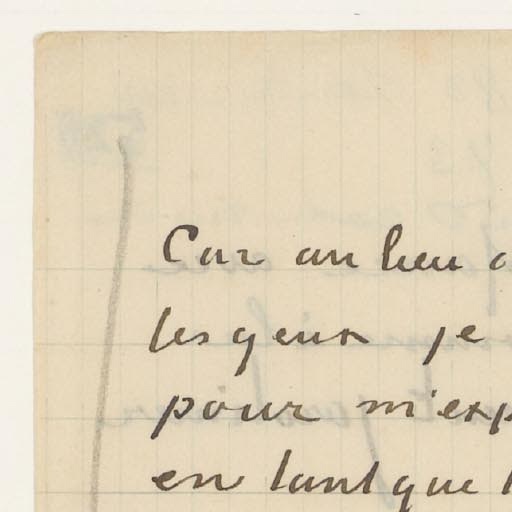 Car au lieu
les yeux je
pour m'exp
en tant que